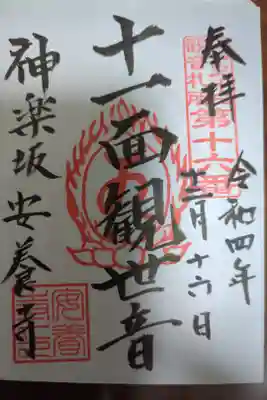 奉拝
令和四年
十二月十六日
観音札所第十六番
十一面観世音
神楽坂安養寺